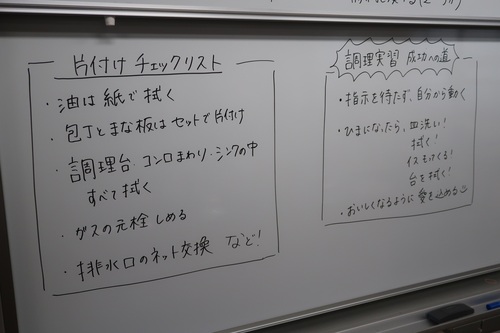 片付け チェックリスト
・油は紙で拭く
・包丁とまな板はセットで片付け
・調理台・コンロまわり・シンクの中
すべて拭く
・ガスの元栓しめる
・排水口のネット交換 など!
調理実習 成功への道
・指示を待たず、自分から動く
・ひまになったら、皿洗い!
拭く!
イスもってくる!
台を拭く!
・おいしくなるように愛を込める